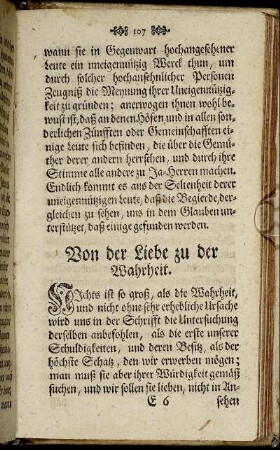 107
wann sie in Gegenwart hochangesehener
Leute ein uneigennützig Werck thun, um
durch solcher hochansehnlicher Personen
Zeugniß die Meynung ihrer Uneigennützig-
keit zu gründen; anerwogen ihnen wohl be-
wust ist, daß an denen Höfen und in allen son-
derlichen Zünfften oder Gemeinschafften ei-
nige Leute sich befinden, die über die Gemü-
ther derer andern herrschen, und durch ihre
Stimme alle andere zu Ja-Herren machen.
Endlich kommt es aus der Seltenheit derer
uneigennützigen Leute, daß die Begierde, der-
gleichen zu sehen, uns in dem Glauben un-
terstützet, daß einige gefunden werden.
Von der Liebe zu der
Wahrheit.
NIchts ist so groß, als die Wahrheit,
und nicht ohne sehr erhebliche Ursache
wird uns in der Schrifft die Untersuchung
derselben anbefohlen, als die erste unserer
Schuldigkeiten, und deren Besitz, als der
höchste Schatz, den wir erwerben mögen;
man muß sie aber ihrer Würdigkeit gemäß
suchen, und wir sollen sie lieben, nicht in An-
E 6 sehen